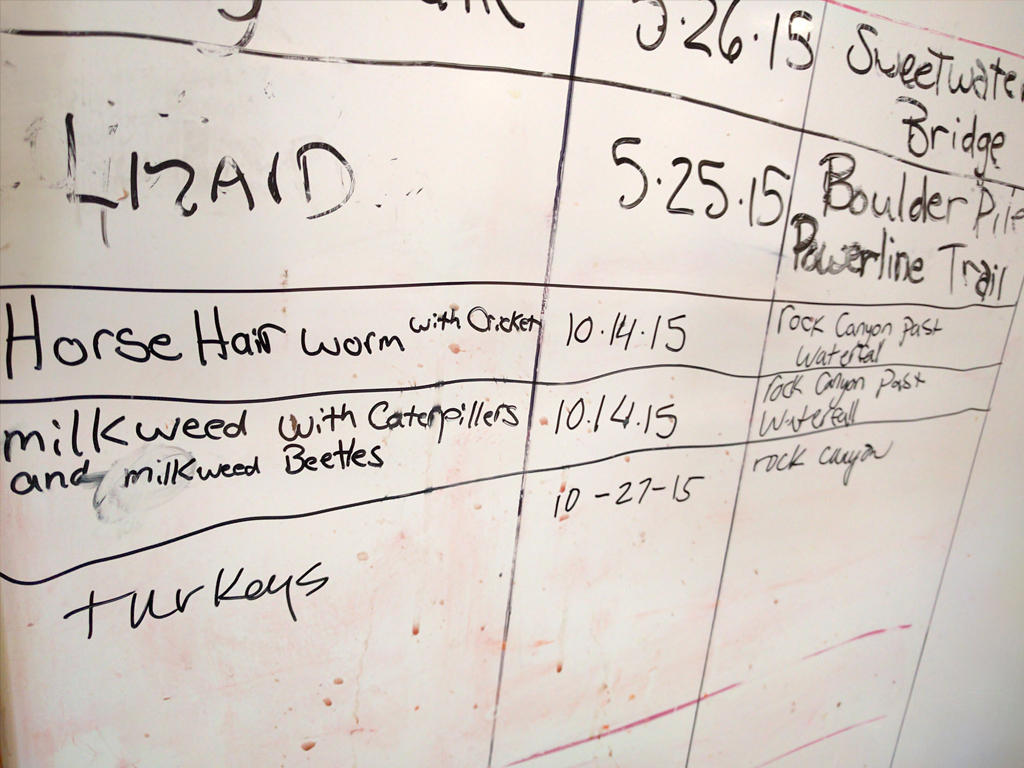 5.26.15 Sweetwater
Bridge
LIZARD 5.25.15 Boulder Pile
Powerline Trail
Horse Hair worm with Cricket 10.14.15 rock Canyon past
waterfal
milkweed with Caterpillers 10.14.15 rock Canyon Past
and milkweed Beetles waterfall
turkeys 10-27-15 rock canyon